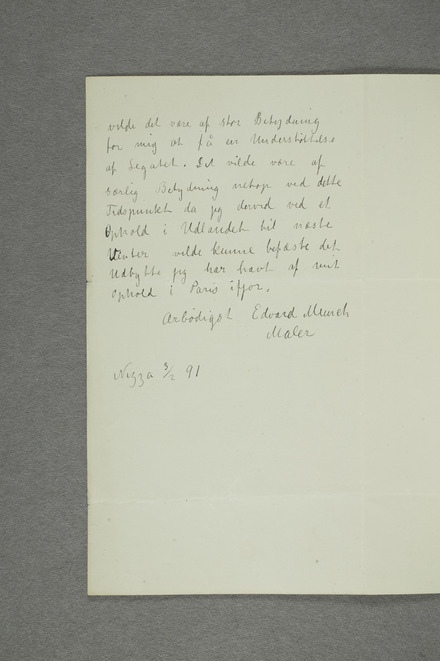 vilde det være af stor Betydning
for mig at få en Understøttelse
af Legatet. Det vilde være af
særlig Betydning netop ved dette
Tidspunkt da jeg derved ved et
Ophold i Udlandet til næste
Vinter vilde kunne befæste det
Udbytte jeg har havt af mit
Ophold i Paris ifjor.
Arbødigst Edvard Munch
Maler
Nizza 3/2 91